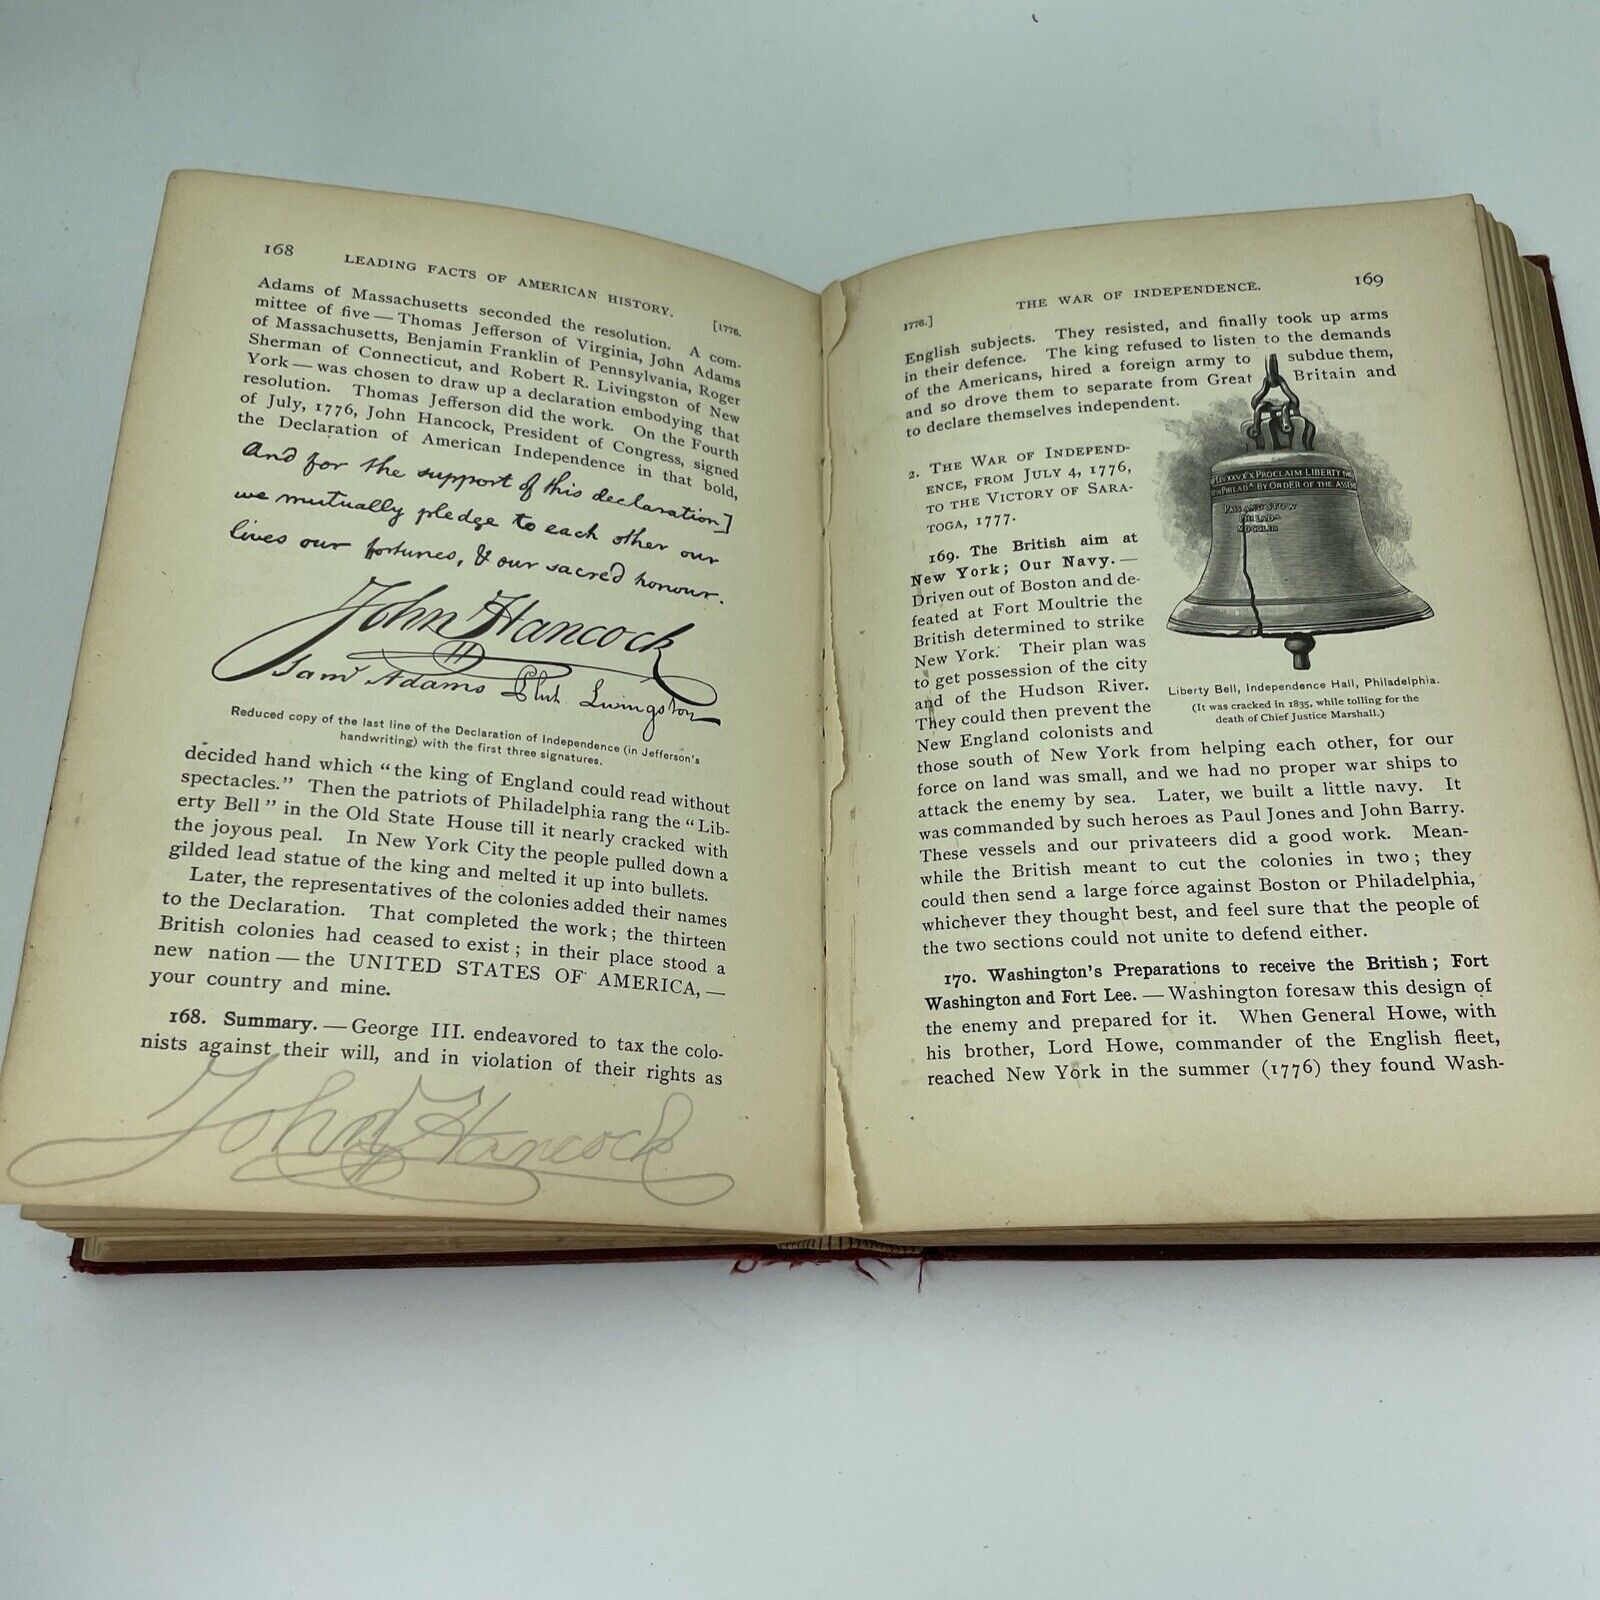 168
LEADING FACTS OF AMERICAN HISTORY.
[1776.
Adams of Massachusetts seconded the resolution. A com-
mittee of five — Thomas Jefferson of Virginia, John Adams
of Massachusetts, Benjamin Franklin of Pennsylvania, Roger
Sherman of Connecticut, and Robert R. Livingston of New
York — was chosen to draw up a declaration embodying that
resolution. Thomas Jefferson did the work. On the Fourth
of July, 1776, John Hancock, President of Congress, signed
the Declaration of American Independence in that bold,
And for the support of this declaration]
we mutually pledge to each other our
lives our fortunes, & our sacred honour.
John Hancock
Saml Adams Phil. Livingston
Reduced copy of the last line of the Declaration of Independence (in Jefferson's
handwriting) with the first three signatures.
decided hand which "the king of England could read without
spectacles." Then the patriots of Philadelphia rang the "Lib-
erty Bell" in the Old State House till it nearly cracked with
the joyous peal. In New York City the people pulled down a
gilded lead statue of the king and melted it up into bullets.
Later, the representatives of the colonies added their names
to the Declaration. That completed the work; the thirteen
British colonies had ceased to exist; in their place stood a
new nation — the UNITED STATES OF AMERICA, —
your country and mine.
168. Summary. — George III. endeavored to tax the colo-
nists against their will, and in violation of their rights as
John Hancock
1776.]
THE WAR OF INDEPENDENCE.
169
English subjects. They resisted, and finally took up arms
in their defence. The king refused to listen to the demands
of the Americans, hired a foreign army to subdue them,
and so drove them to separate from Great Britain and
to declare themselves independent.
2. THE WAR OF INDEPEND-
ENCE, FROM JULY 4, 1776,
TO THE VICTORY OF SARA-
TOGA, 1777.
169. The British aim at
New York; Our Navy. —
Driven out of Boston and de-
feated at Fort Moultrie the
British determined to strike
New York. Their plan was
to get possession of the city
and of the Hudson River.
They could then prevent the
New England colonists and
PROCLAIM LIBERTY
PHILADA. BY ORDER OF THE ASSE
PASS AND STOW
PHILADA
MDCCLIII
Liberty Bell, Independence Hall, Philadelphia.
(It was cracked in 1835, while tolling for the
death of Chief Justice Marshall.)
those south of New York from helping each other, for our
force on land was small, and we had no proper war ships to
attack the enemy by sea. Later, we built a little navy. It
was commanded by such heroes as Paul Jones and John Barry.
These vessels and our privateers did a good work. Mean-
while the British meant to cut the colonies in two; they
could then send a large force against Boston or Philadelphia,
whichever they thought best, and feel sure that the people of
the two sections could not unite to defend either.
170. Washington's Preparations to receive the British; Fort
Washington and Fort Lee. — Washington foresaw this design of
the enemy and prepared for it. When General Howe, with
his brother, Lord Howe, commander of the English fleet,
reached New York in the summer (1776) they found Wash-